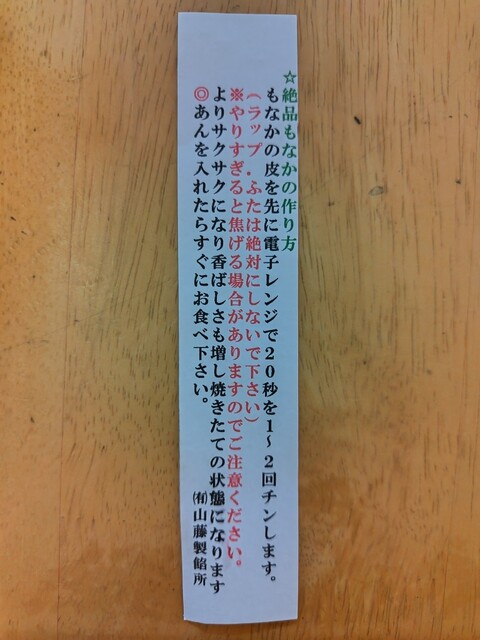 ☆絶品もなかの作り方
もなかの皮を先に電子レンジで20秒を1～2回チンします。
(ラップ．ふたは絶対にしないで下さい)
※やりすぎると焦げる場合がありますのでご注意ください。
よりサクサクになり香ばしさも増し焼きたての状態になります
◎あんを入れたらすぐにお食べ下さい。
㈲山藤製餡所